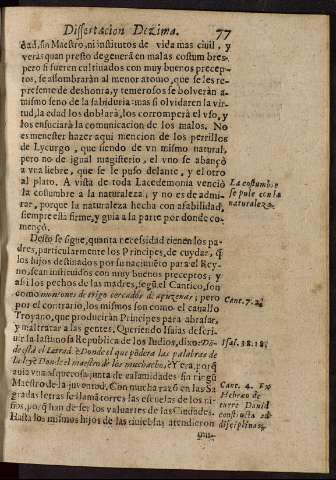 Dissertacion Dezima. 77
dad, sin Maestro, ni institutos de vida mas civil, y
veràs quan presto degenerà en malas costumbres,
pero si fueren cultivados con muy buenos precep-
tos, se assombraràn al menor atomo, que se les re-
presente de deshonra, y temerosos se bolveràn a
mismo seno de la sabiduria: mas si olvidaren la vir-
tud, la edad los doblarà, los corromperà el vso, y
los ensuciarà la comunicacion de los malos. No
es menester hazer aqui mencion de los perrillos
de Lycurgo, que siendo de vn mismo natural,
pero no de igual magisterio, el vno se abançò
a vna liebre, que se le puso delante, y el otro
al plato. A vista de toda Lacedemonia venciò
la costumbre a la naturaleza, y no es de admi-
rar, porque la naturaleza hecha con afabilidad,
siempre esta firme, y guia a la parte por donde co-
mençò.
La costumbre
se pule con la
naturaleza.
Desto se sigue, quanta necessidad tienen los pa-
dres, particularmente los Principes, de cuydar, q̃
los hijos destinados por su nacimiento para el Rey-
no, sean instituidos con muy buenos preceptos; y
assi los pechos de las madres, segun el Cantico, son
como montones de trigo cercados de açuzenas; pero
por el contrario, los mismos son como el cavallo
Troyano, que produciràn Principes para abrasar,
y maltratar a las gentes. Queriendo Isaias descri-
vir la Republica de los Iudios, dixo: Dõ-
de està el Letrado? Donde el que pondera las palabras de
la ley? Donde el maestro de los muchachos? Y era, porq̃
avia vna junta de calamidades sin ningũ
Maestro de la juventud. Con mucha razon en las Sa
gradas letras se llama torres las escuelas de los ni-
ños, porq̃ han de ser los valuartes de las Ciudades.
Hasta los mismos hijos de las tinieblas atendieron
Cant. 7.2.
Isai. 38.18.
Cant. 4. Ex
Hebreo
turre David
constructa ad
disciplinas.